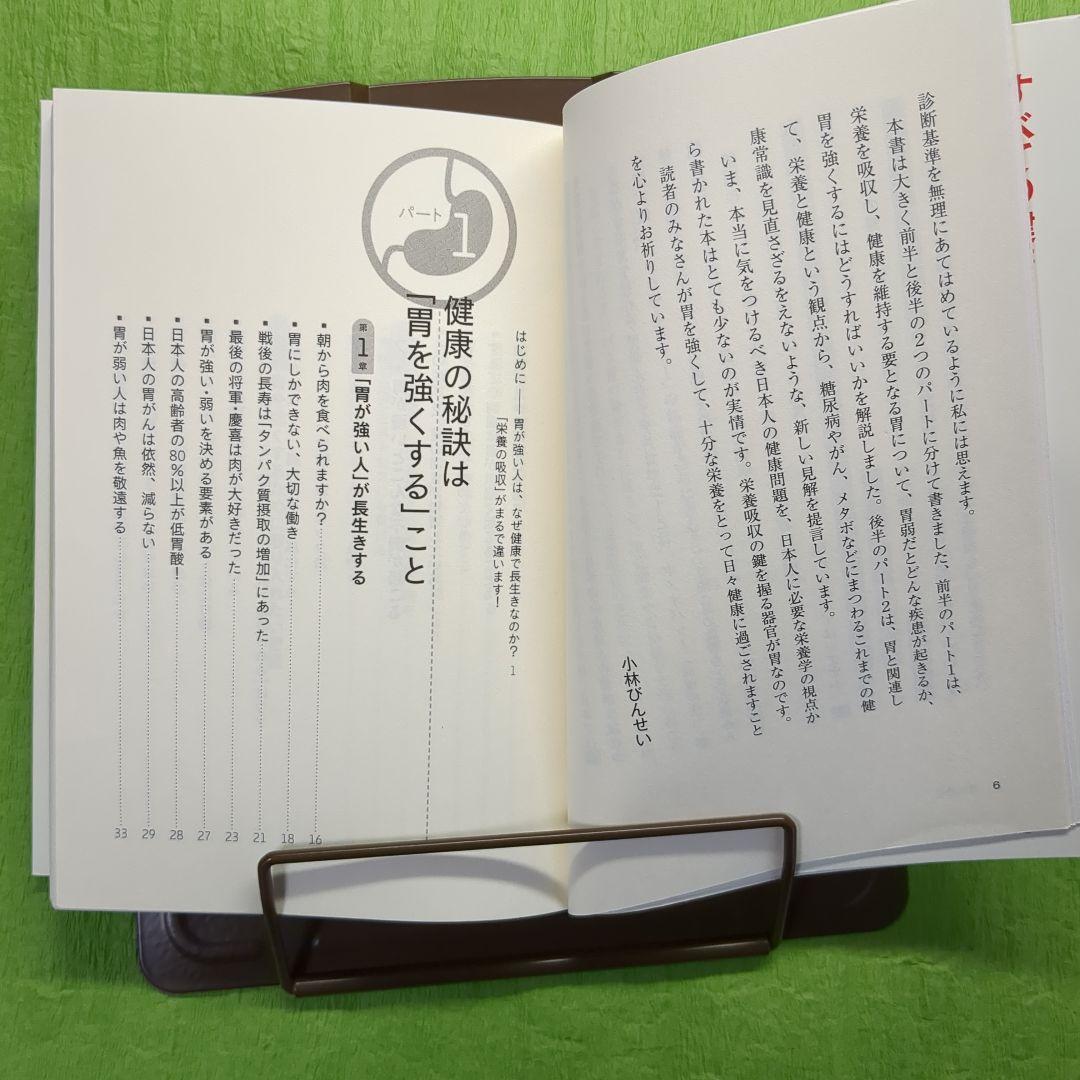 診断基準を無理にあてはめているように私には思えます。
本書は大きく前半と後半の2つのパートに分けて書きました、前半のパート1は、
栄養を吸収し、健康を維持する要となる胃について、胃弱だとどんな疾患が起きるか、
胃を強くするにはどうすればいいかを解説しました。後半のパート2は、胃と関連し
て、栄養と健康という観点から、糖尿病やがん、メタボなどにまつわるこれまでの健
康常識を見直さざるをえないような、新しい見解を提言しています。
いま、本当に気をつけるべき日本人の健康問題を、日本人に必要な栄養学の視点か
ら書かれた本はとても少ないのが実情です。栄養吸収の鍵を握る器官が胃なのです。
読者のみなさんが胃を強くして、十分な栄養をとって日々健康に過ごされますこと
を心よりお祈りしています。
小林びんせい
6
はじめに——胃が強い人は、なぜ健康で長生きなのか?
「栄養の吸収」がまるで違います! 1
パート1
健康の秘訣は
「胃を強くする」こと
第1章 「胃が強い人」が長生きする
■朝から肉を食べられますか? 16
■胃にしかできない、大切な働き 18
■戦後の長寿は「タンパク質摂取の増加」にあった 21
■最後の将軍・慶喜は肉が大好きだった 23
■胃が強い・弱いを決める要素がある 27
■日本人の高齢者の80%以上が低胃酸! 28
■日本人の胃がんは依然、減らない 29
■胃が弱い人は肉や魚を敬遠する 33